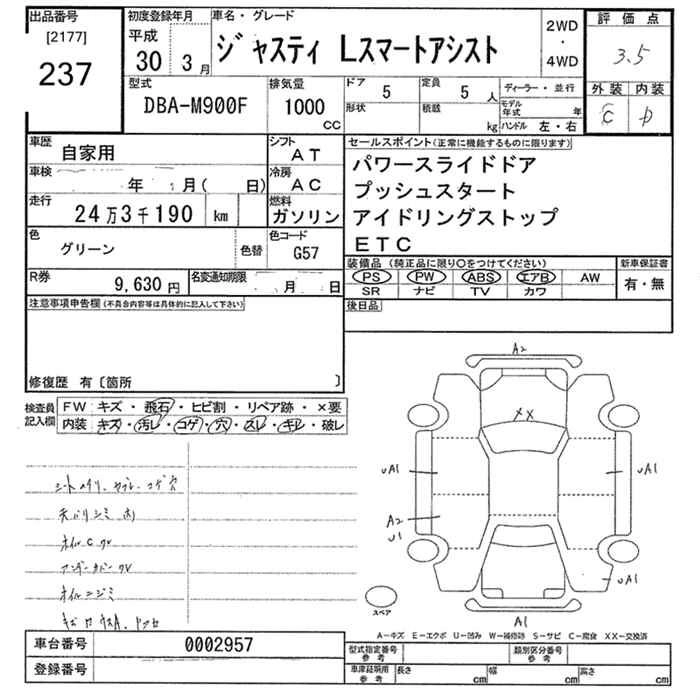 出品番号
[2177]
237
初度登録年月
平成
30 3月
車名・グレード
ジャスティ Lスマートアシスト
2WD
・
4WD
評価点
3.5
外装 内装
C D
型式
DBA-M900F
排気量
1000
CC
ドア
5
定員
5人
形状
積載
kg
ディーラー・並行
モデル年式 年
ハンドル 左・右
車歴
自家用
シフト
AT
車検
年 月( 日)
冷房
AC
走行
24万3千190 km
燃料
ガソリン
色
グリーン
色替
色コード
G57
R券
9,630円
名変通知期限
月 日
セールスポイント(正常に機能するものに限ります)
パワースライドドア
プッシュスタート
アイドリングストップ
ETC
装備品 (純正品に限り○をつけてください)
PS PW ABS エアB AW
SR ナビ TV カワ
新車保証書
有・無
後日品
注意事項申告欄(不具合内容等は具体的に記入して下さい)
修復歴 有〔箇所 〕
検査員
記入欄
FW キズ・飛石・ヒビ割・リペア跡・×要
内装 キズ・汚レ・コゲ・穴・スレ・キレ・破レ
天バリシミ
オイルニジミ
A2
XX
UA1
UA1
A2
U1
UA1
A1
スペア
A-キズ E-エクボ U-凹み W-補修跡 S-サビ C-腐食 XX-交換済
車台番号 0002957
登録番号
型式指定番号
参考
類別区分番号
参考
車庫証明用
参考
長さ cm 幅 cm 高さ cm